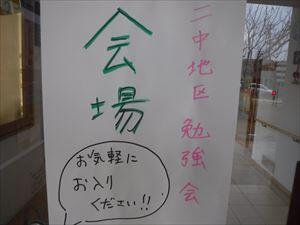 二中地区 勉強会
会場
お気軽に
お入り
ください!!